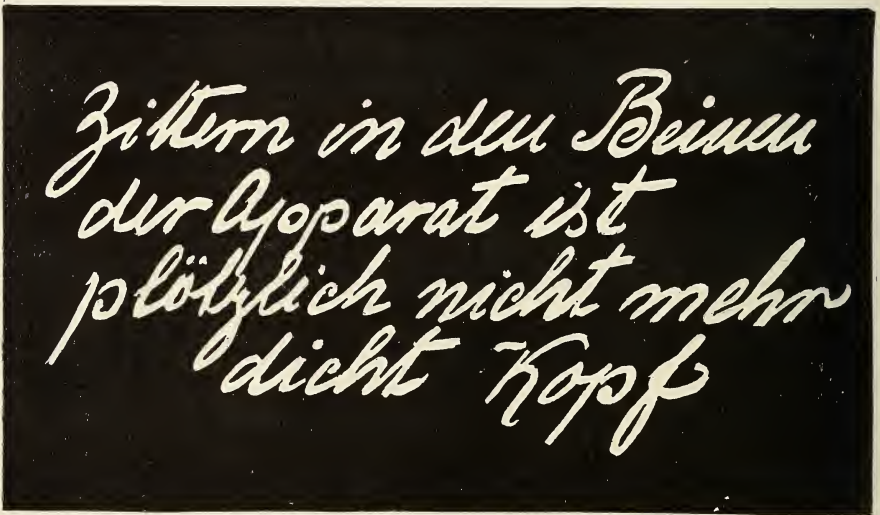 Zittern in den Beinen
der Apparat ist
plötzlich nicht mehr
dicht Kopf